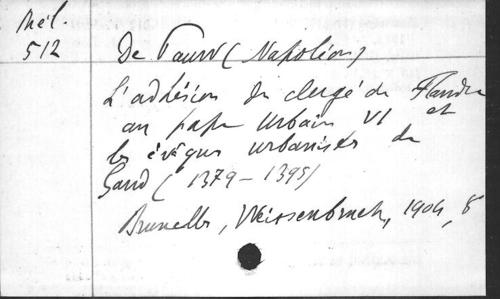 Mél.
512
De Pauw (Napoléon)
L'adhésion du clergé de Flandre
au pape Urbain VI et
les évêques urbanistes de
Gand (1379-1395)
Bruxelles, Weissenbruch, 1904, 8°